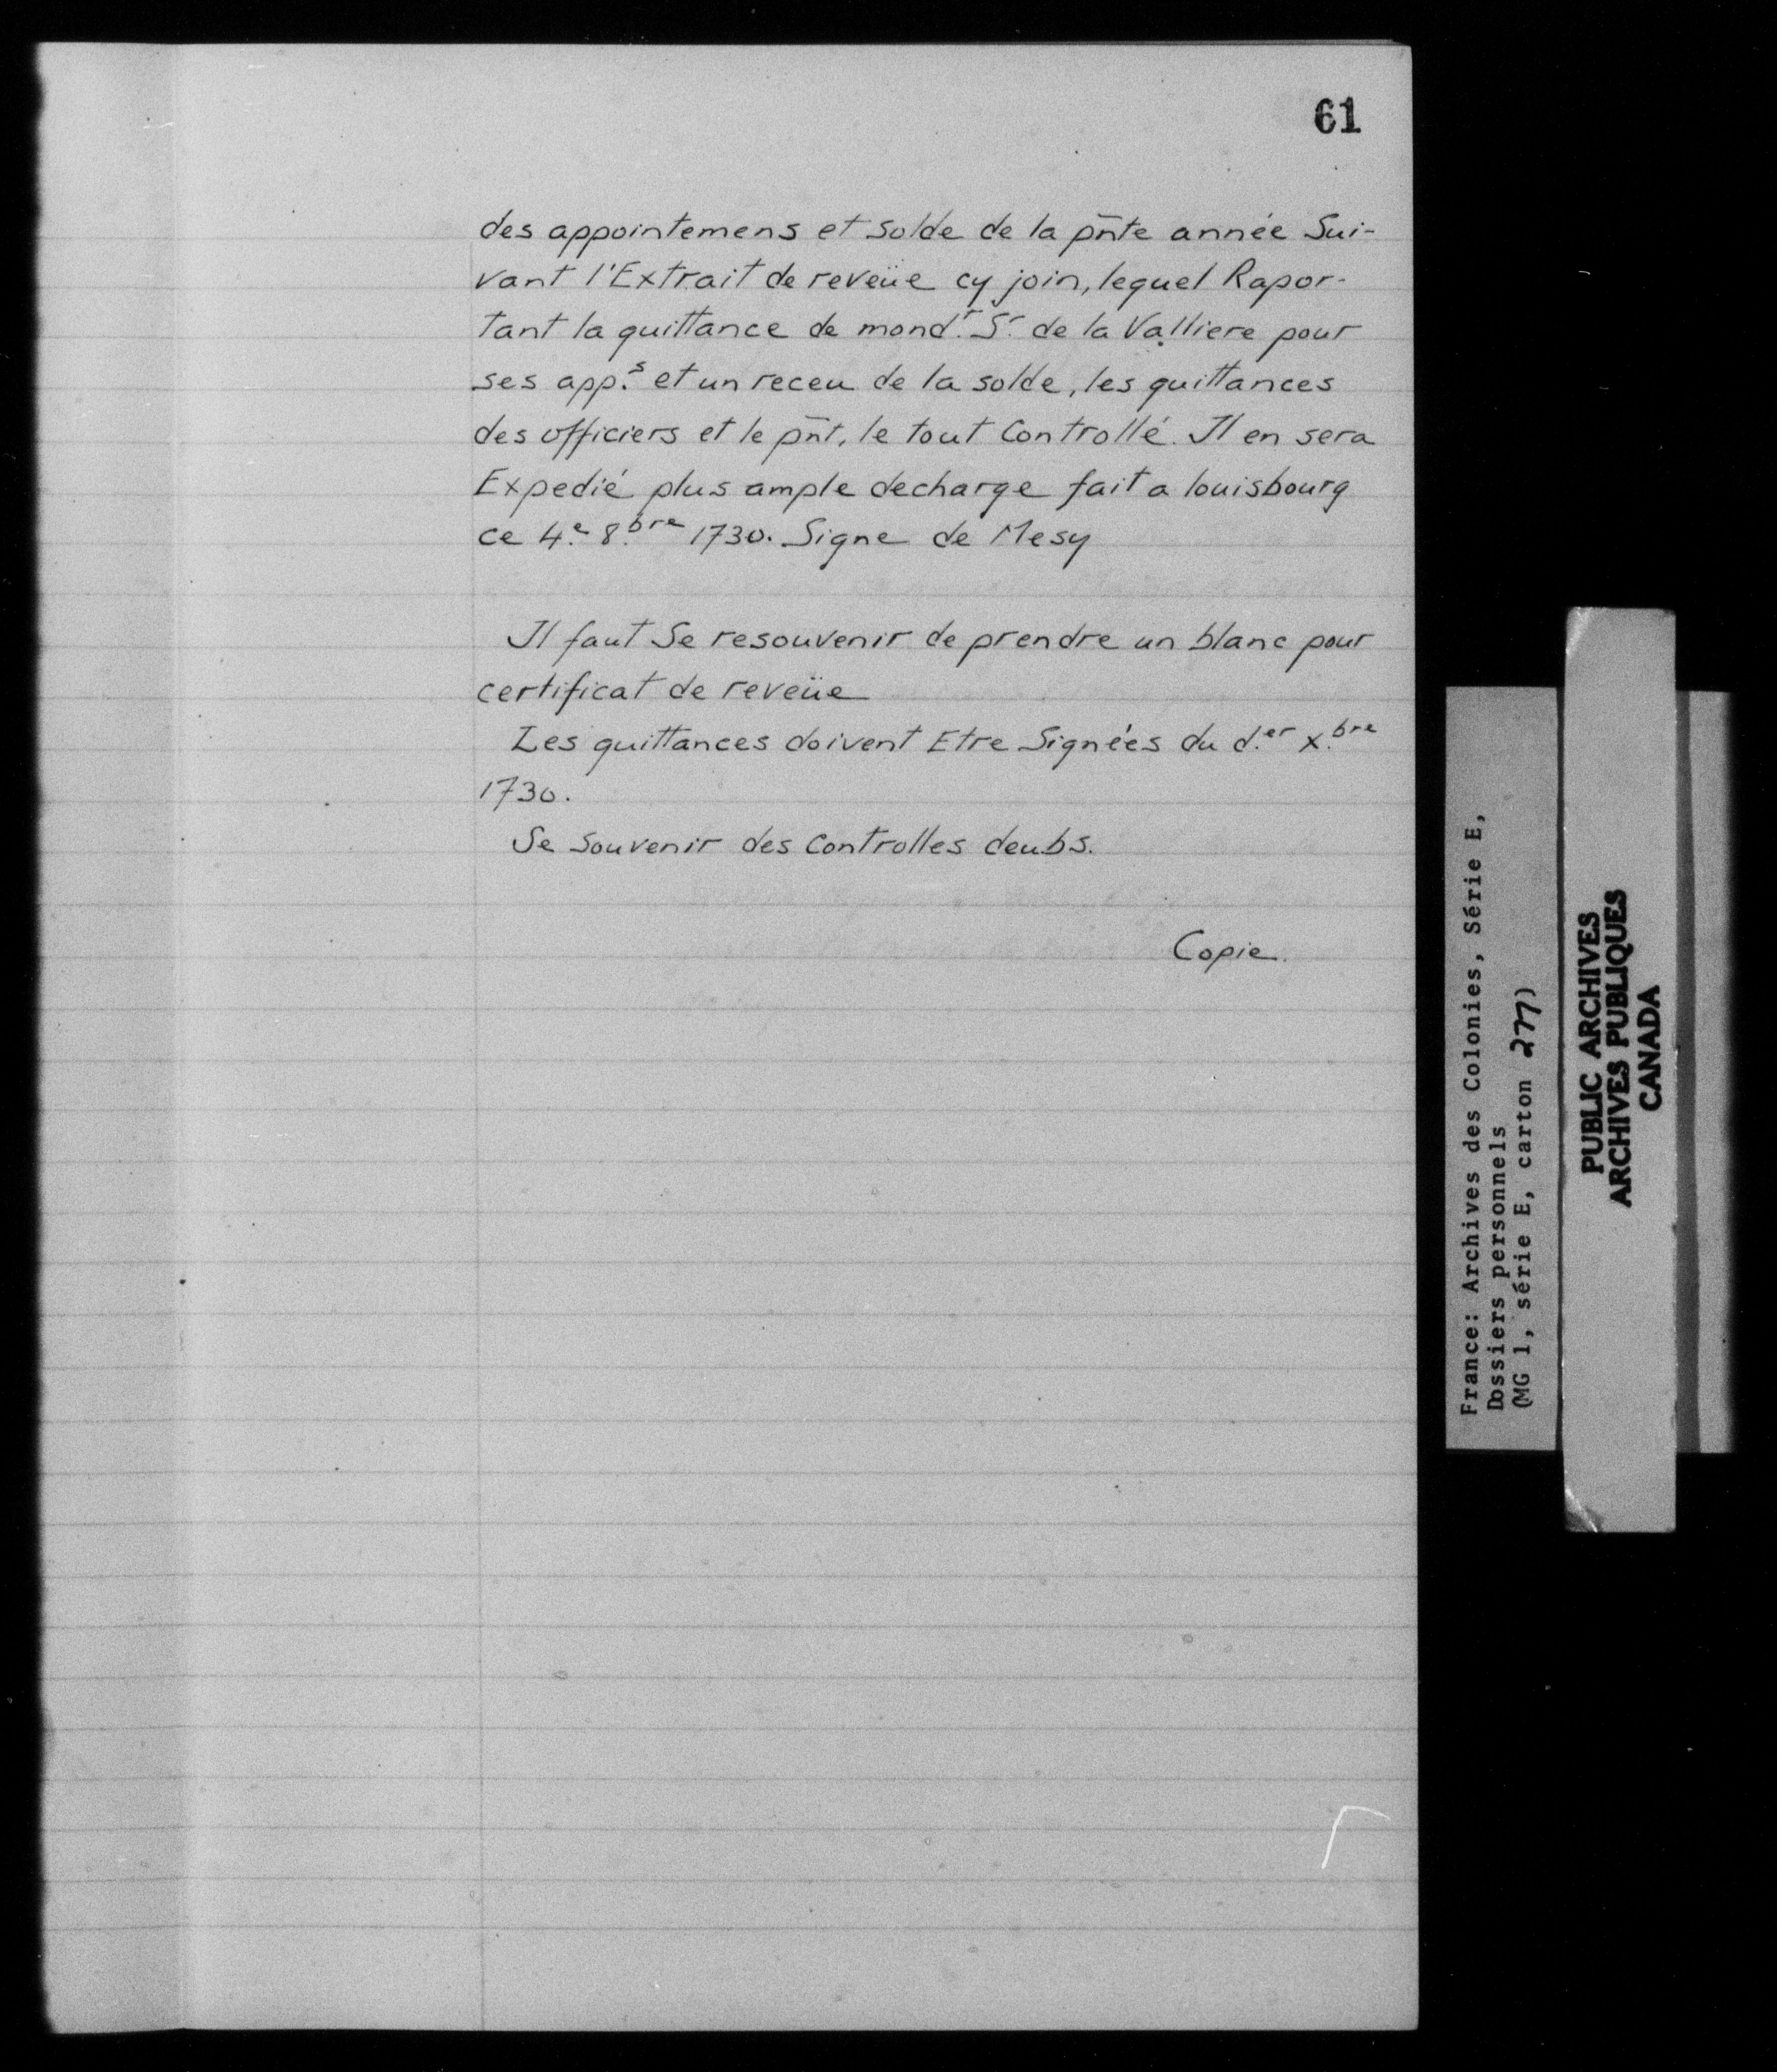 61
des appointemens et solde de la pn̄te année Sui-
vant l'Extrait de reveüe cy join, lequel Rapor-
tant la quittance de mond.r S.r de la Valliere pour
ses app.s et un receu de la solde, les quittances
des officiers et le pn̄t, le tout Controllé. Il en sera
Expedié plus ample decharge fait a louisbourg
ce 4.e 8.bre 1730. Signe de Mesy
Il faut Se resouvenir de prendre un blanc pour
certificat de reveüe
Les quittances doivent Etre Signées du d.er x.bre
1730.
Se souvenir des Controlles deubs.
Copie.
France: Archives des Colonies, Série E,
Dossiers personnels
(MG 1, série E, carton 277)
PUBLIC ARCHIVES
ARCHIVES PUBLIQUES
CANADA